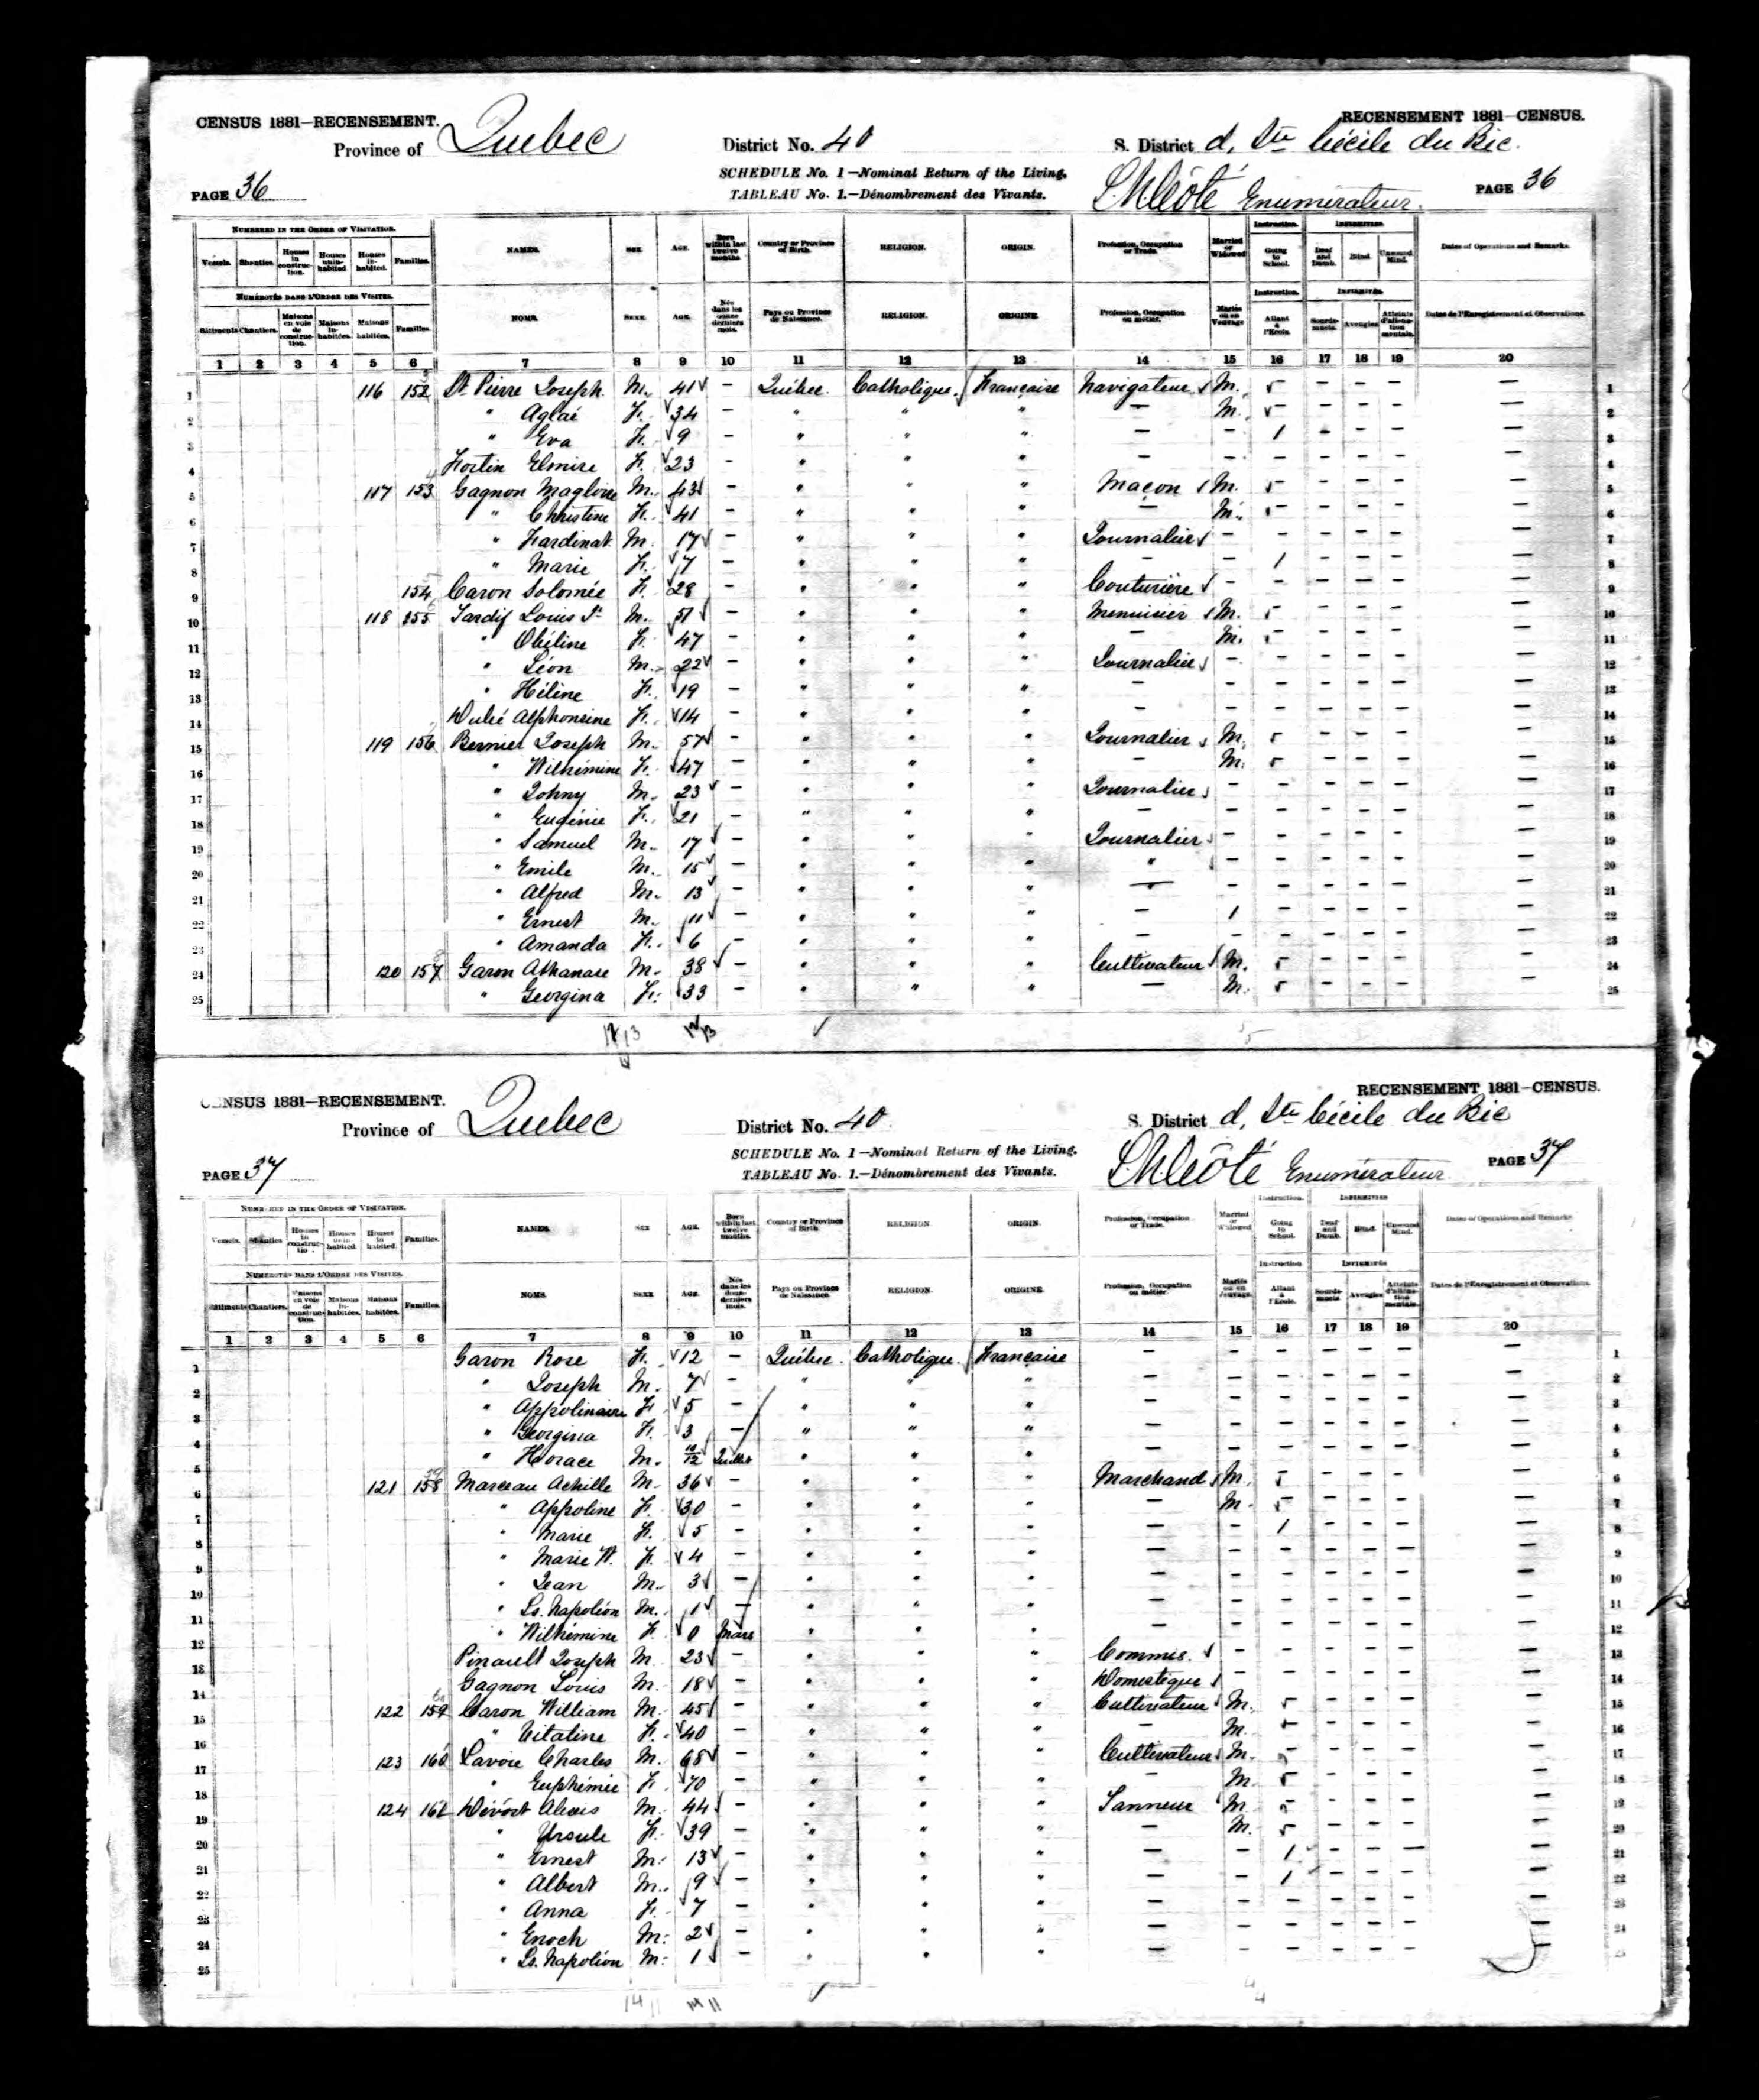 CENSUS 1881—RECENSEMENT. RECENSEMENT 1881—CENSUS.
Province of Quebec District No. 40 S. District d, Ste Cécile du Bic.
SCHEDULE No. 1—Nominal Return of the Living.
PAGE 36 TABLEAU No. 1.—Dénombrement des Vivants. Enumérateur. PAGE 36
NUMBERED IN THE ORDER OF VISITATION. NAMES. SEX. AGE. Born within last twelve months. Country or Province of Birth. RELIGION. ORIGIN. Profession, Occupation or Trade. Married or Widowed Instruction. Going to School. INFIRMITIES. Deaf and Dumb. Blind. Unsound Mind. Dates of Operations and Remarks.
Vessels. Shanties. Houses in construction. Houses uninhabited. Houses inhabited. Families.
NUMÉROTÉS DANS L'ORDRE DES VISITES. NOMS. SEXE. AGE. Nés dans les douze derniers mois. Pays ou Province de Naissance. RELIGION. ORIGINE. Profession, Occupation ou métier. Mariés ou en Veuvage Instruction. Allant à l'École. INFIRMITÉS. Sourds-muets. Aveugles Atteints d'aliénation mentale. Dates de l'Enregistrement et Observations.
Bâtiments Chantiers. Maisons en voie de construction. Maisons inhabitées. Maisons habitées. Familles.
1 2 3 4 5 6 7 8 9 10 11 12 13 14 15 16 17 18 19 20
1 116 152 St Pierre Joseph M. 41 – Québec. Catholique. Française Navigateur M. – – – – 1
2 " Aglaé F. 34 – " " " – M. – – – – 2
3 " Eva F. 9 – " " " – – 1 – – – – 3
4 Fortin Elmire F. 23 – " " " – – – – – – – 4
5 117 153 Gagnon Magloire M. 43 – " " " Maçon M. – – – – 5
6 " Christine F. 41 – " " " – M. – – – – 6
7 " Fardinat M. 17 – " " " Journalier – – – – – – 7
8 " Marie F. 7 – " " " – – 1 – – – – 8
9 154 Caron Solomée F. 28 – " " " Couturière – – – – – – 9
10 118 155 Tardif Louis St M. 51 – " " " Menuisier M. – – – – 10
11 " Obéline F. 47 – " " " – M. – – – – 11
12 " Léon M. 22 – " " " Journalier – – – – – – 12
13 " Hélène F. 19 – " " " – – – – – – – 13
14 Dubé Alphonsine F. 14 – " " " – – – – – – – 14
15 119 156 Bernier Joseph M. 57 – " " " Journalier M. – – – – 15
16 " Wilhémine F. 47 – " " " – M. – – – – 16
17 " Johny M. 23 – " " " Journalier – – – – – – 17
18 " Eugénie F. 21 – " " " – – – – – – – 18
19 " Samuel M. 17 – " " " Journalier – – – – – – 19
20 " Emile M. 15 – " " " " – – – – – – 20
21 " Alfred M. 13 – " " " – – – – – – – 21
22 " Ernest M. 11 – " " " – 1 – – – – – 22
23 " Amanda F. 6 – " " " – – – – – – – 23
24 120 157 Garon Athanase M. 38 – " " " Cultivateur M. – – – – 24
25 " Georgina F. 33 – " " " – M. – – – – 25
CENSUS 1881—RECENSEMENT. RECENSEMENT 1881—CENSUS.
Province of Quebec District No. 40 S. District d, Ste Cécile du Bic
SCHEDULE No. 1—Nominal Return of the Living.
PAGE 37 TABLEAU No. 1.—Dénombrement des Vivants. Enumérateur PAGE 37
NUMBERED IN THE ORDER OF VISITATION. NAMES. SEX AGE. Born within last twelve months. Country or Province of Birth. RELIGION ORIGIN. Profession, Occupation or Trade. Married or Widowed Instruction. Going to School. INFIRMITIES Deaf and Dumb. Blind. Unsound Mind. Dates of Operations and Remarks.
Vessels. Shanties Houses in construction. Houses uninhabited. Houses inhabited. Families.
NUMÉROTÉS DANS L'ORDRE DES VISITES. NOMS. SEXE AGE. Nés dans les douze derniers mois. Pays ou Province de Naissance. RELIGION. ORIGINE. Profession, Occupation ou métier. Mariés ou en Veuvage. Instruction Allant à l'École. INFIRMITÉS Sourds-muets. Aveugles Atteints d'aliénation mentale. Dates de l'Enregistrement et Observations.
Bâtiments Chantiers. Maisons en voie de construction. Maisons inhabitées. Maisons habitées. Familles.
1 2 3 4 5 6 7 8 9 10 11 12 13 14 15 16 17 18 19 20
1 Garon Rose F. 12 – Québec. Catholique. Française – – – – – – – 1
2 " Joseph M. 7 – " " " – – – – – – – 2
3 " Appolinaire F. 5 – " " " – – – – – – – 3
4 " Georgina F. 3 – " " " – – – – – – – 4
5 " Horace M. 10/12 Juillet " " " – – – – – – – 5
6 121 158 Marceau Achille M. 36 – " " " Marchand M. – – – – 6
7 " Appoline F. 30 – " " " – M. – – – – 7
8 " Marie F. 5 – " " " – – 1 – – – – 8
9 " Marie W. F. 4 – " " " – – – – – – – 9
10 " Jean M. 3 – " " " – – – – – – – 10
11 " Ls. Napoléon M. 1 – " " " – – – – – – – 11
12 " Wilhémine F. 0 Mars " " " – – – – – – – 12
13 Pinault Joseph M. 23 – " " " Commis. – – – – – – 13
14 Gagnon Louis M. 18 – " " " Domestique – – – – – – 14
15 122 159 Caron William M. 45 – " " " Cultivateur M. – – – – 15
16 " Vitaline F. 40 – " " " – M. – – – – 16
17 123 160 Lavoie Charles M. 68 – " " " Cultivateur M. – – – – 17
18 " Euphémie F. 70 – " " " – M. – – – – 18
19 124 161 Dévost Alexis M. 44 – " " " Tanneur M. – – – – 19
20 " Ursule F. 39 – " " " – M. – – – – 20
21 " Ernest M. 13 – " " " – – 1 – – – – 21
22 " Albert M. 9 – " " " – – 1 – – – – 22
23 " Anna F. 7 – " " " – – – – – – – 23
24 " Enoch M. 2 – " " " – – – – – – – 24
25 " Ls. Napoléon M. 1 – " " " – – – – – – – 25